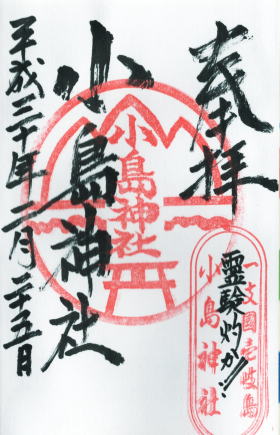 奉拝
一支國壱岐島
小島神社
靈験灼か!!
小島神社
小島神社
平成三十年二月二十五日